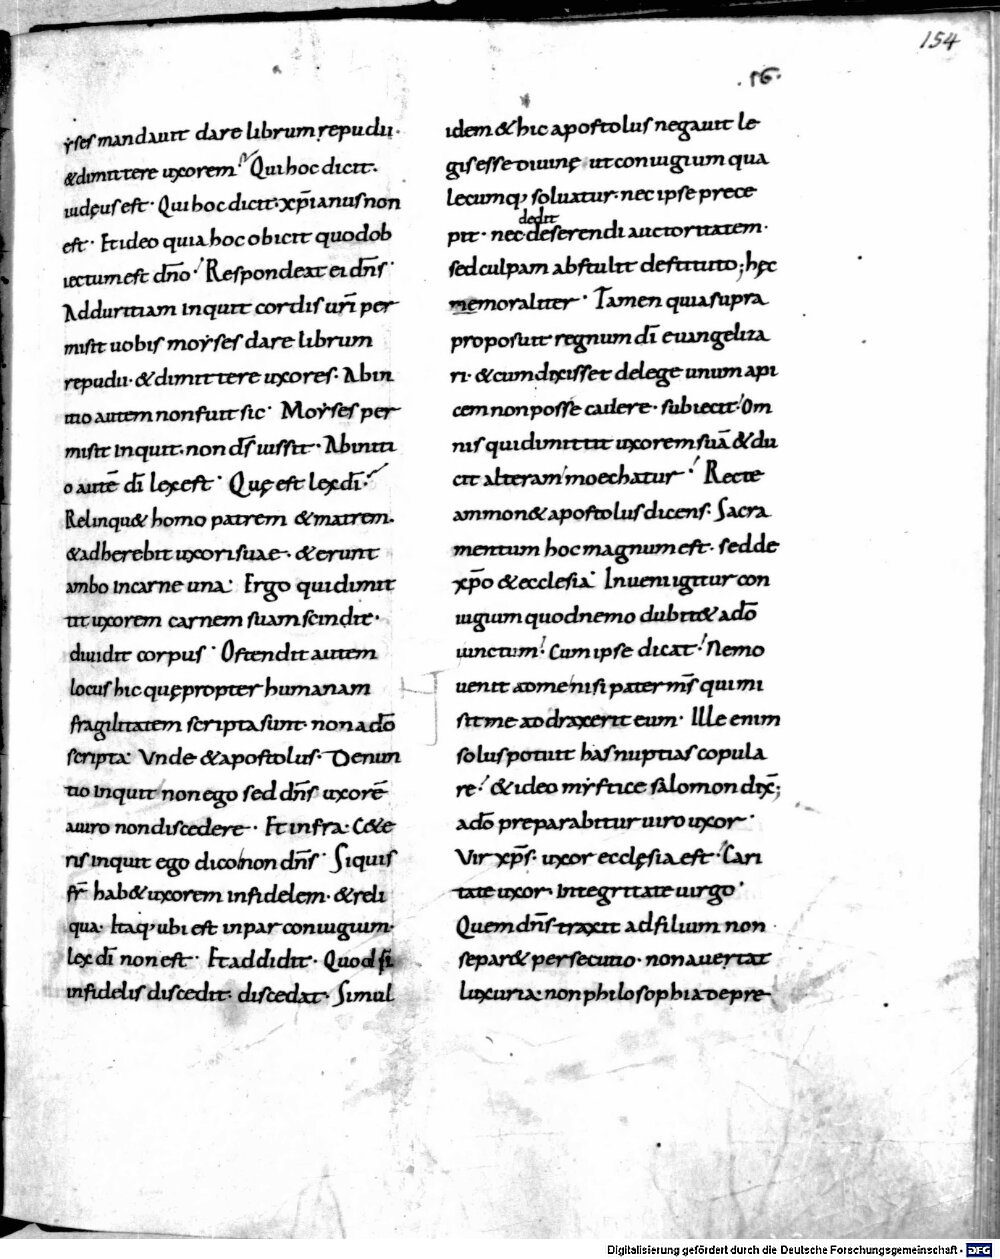 154
.16.
ẏses mandauit dare librum repudii·
&dimittere uxorem· Qui hoc dicit·
iudęus est· Qui hoc dicit· xp̄ianus non
est· Et ideo quia hoc obicit quod ob
iectum est dn̄o· Respondeat ei dn̄s·
Ad duritiam inquit cordis uri̅ per
misit uobis moẏses dare librum
repudii· & dimittere uxores· Ab in
itio autem non fuit sic· Moẏses per
misit inquit· non ds̄ iussit· Ab initi
o autē di̅ lex est· Quę est lex di̅·
Relinqu& homo patrem & matrem·
& adherebit uxori suae· & erunt
ambo in carne una· Ergo qui dimit
tit uxorem carnem suam scindit·
diuidit corpus· Ostendit autem
locus hic quę propter humanam
fragilitatem scripta sunt· non a dō
scripta· Vnde & apostolus· Denun
tio inquit non ego sed dn̄s uxorē
a uiro non discedere·· Et infra· C&e
ris inquit ego dico non dn̄s· Siquis
fr̄ hab& uxorem infidelem· & reli
qua· Itaq; ubi est inpar coniugium·
lex di̅ non est· Et addidit· Quod si
infidelis discedit· discedat· Simul
idem & hic apostolus negauit le
gis esse diuinę ut coniugium qua
lecumq; soluatur· nec ipse prece
dedit
pit· nec deserendi auctoritatem·
sed culpam abstulit destituto; hęc
memoraliter· Tamen quia supra
proposuit regnum di̅ euangeliza
ri· & cum dixisset de lege unum api
cem non posse cadere· subiecit· Om
nis qui dimittit uxorem suā & du
cit alteram moechatur· Recte
ammon& apostolus dicens· Sacra
mentum hoc magnum est· sed de
xp̄o & ecclesia· Inueni igitur con
iugium quod nemo dubit& a dō
iunctum· Cum ipse dicat· Nemo
uenit ad me nisi pater ms̄ qui mi
sit me adtraxerit eum· Ille enim
solus potuit has nuptias copula
re· & ideo mẏstice salomon dix̄;
a dō preparabitur uiro uxor·
Vir xp̄s· uxor ecclęsia est· Cari
tate uxor· integritate uirgo·
Quem dn̄s traxit ad filium non
separ& persecutio· non auertat
luxuria· non philosophia depre
Digitalisierung gefördert durch die Deutsche Forschungsgemeinschaft - DFG